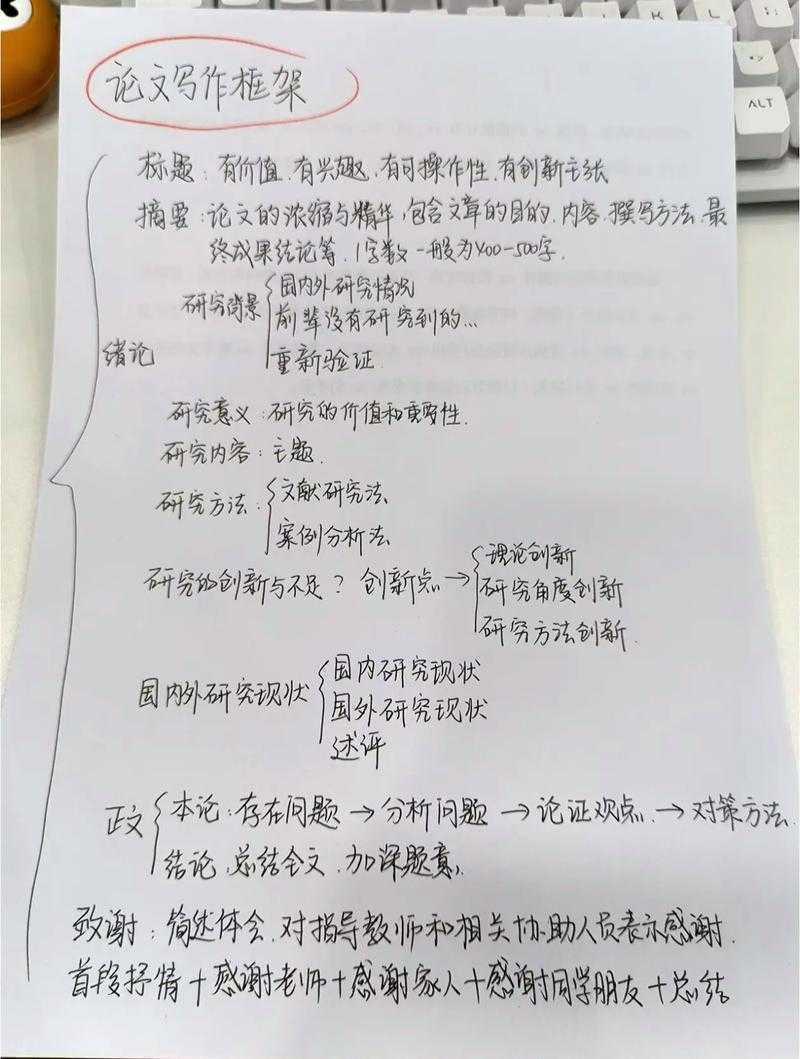 论文写作框架
标题：有价值、有兴趣、有可操作性、有创新主张
摘要：论文的浓缩与精华，包含文章的目的、内容、撰写方法、最
终成果结论等，字数一般为400-500字.
绪论
研究背景
国内外研究情况
前辈没有研究到的...
重新验证
研究意义：研究的价值和重要性.
研究内容：主题.
研究方法：
文献研究法
案例分析法
研究的创新与不足？创新点→
理论创新
研究角度创新
研究方法创新.
国内外研究现状
国内研究现状
国外研究现状
述评
正文
本论：存在问题→分析问题→论证观点→对策方法
结论、总结全文、加深题意.
致谢：简述体会、对指导教师和相关协助人员表示感谢.
首段抒情+感谢老师+感谢家人+感谢同学朋友+总结
ALT